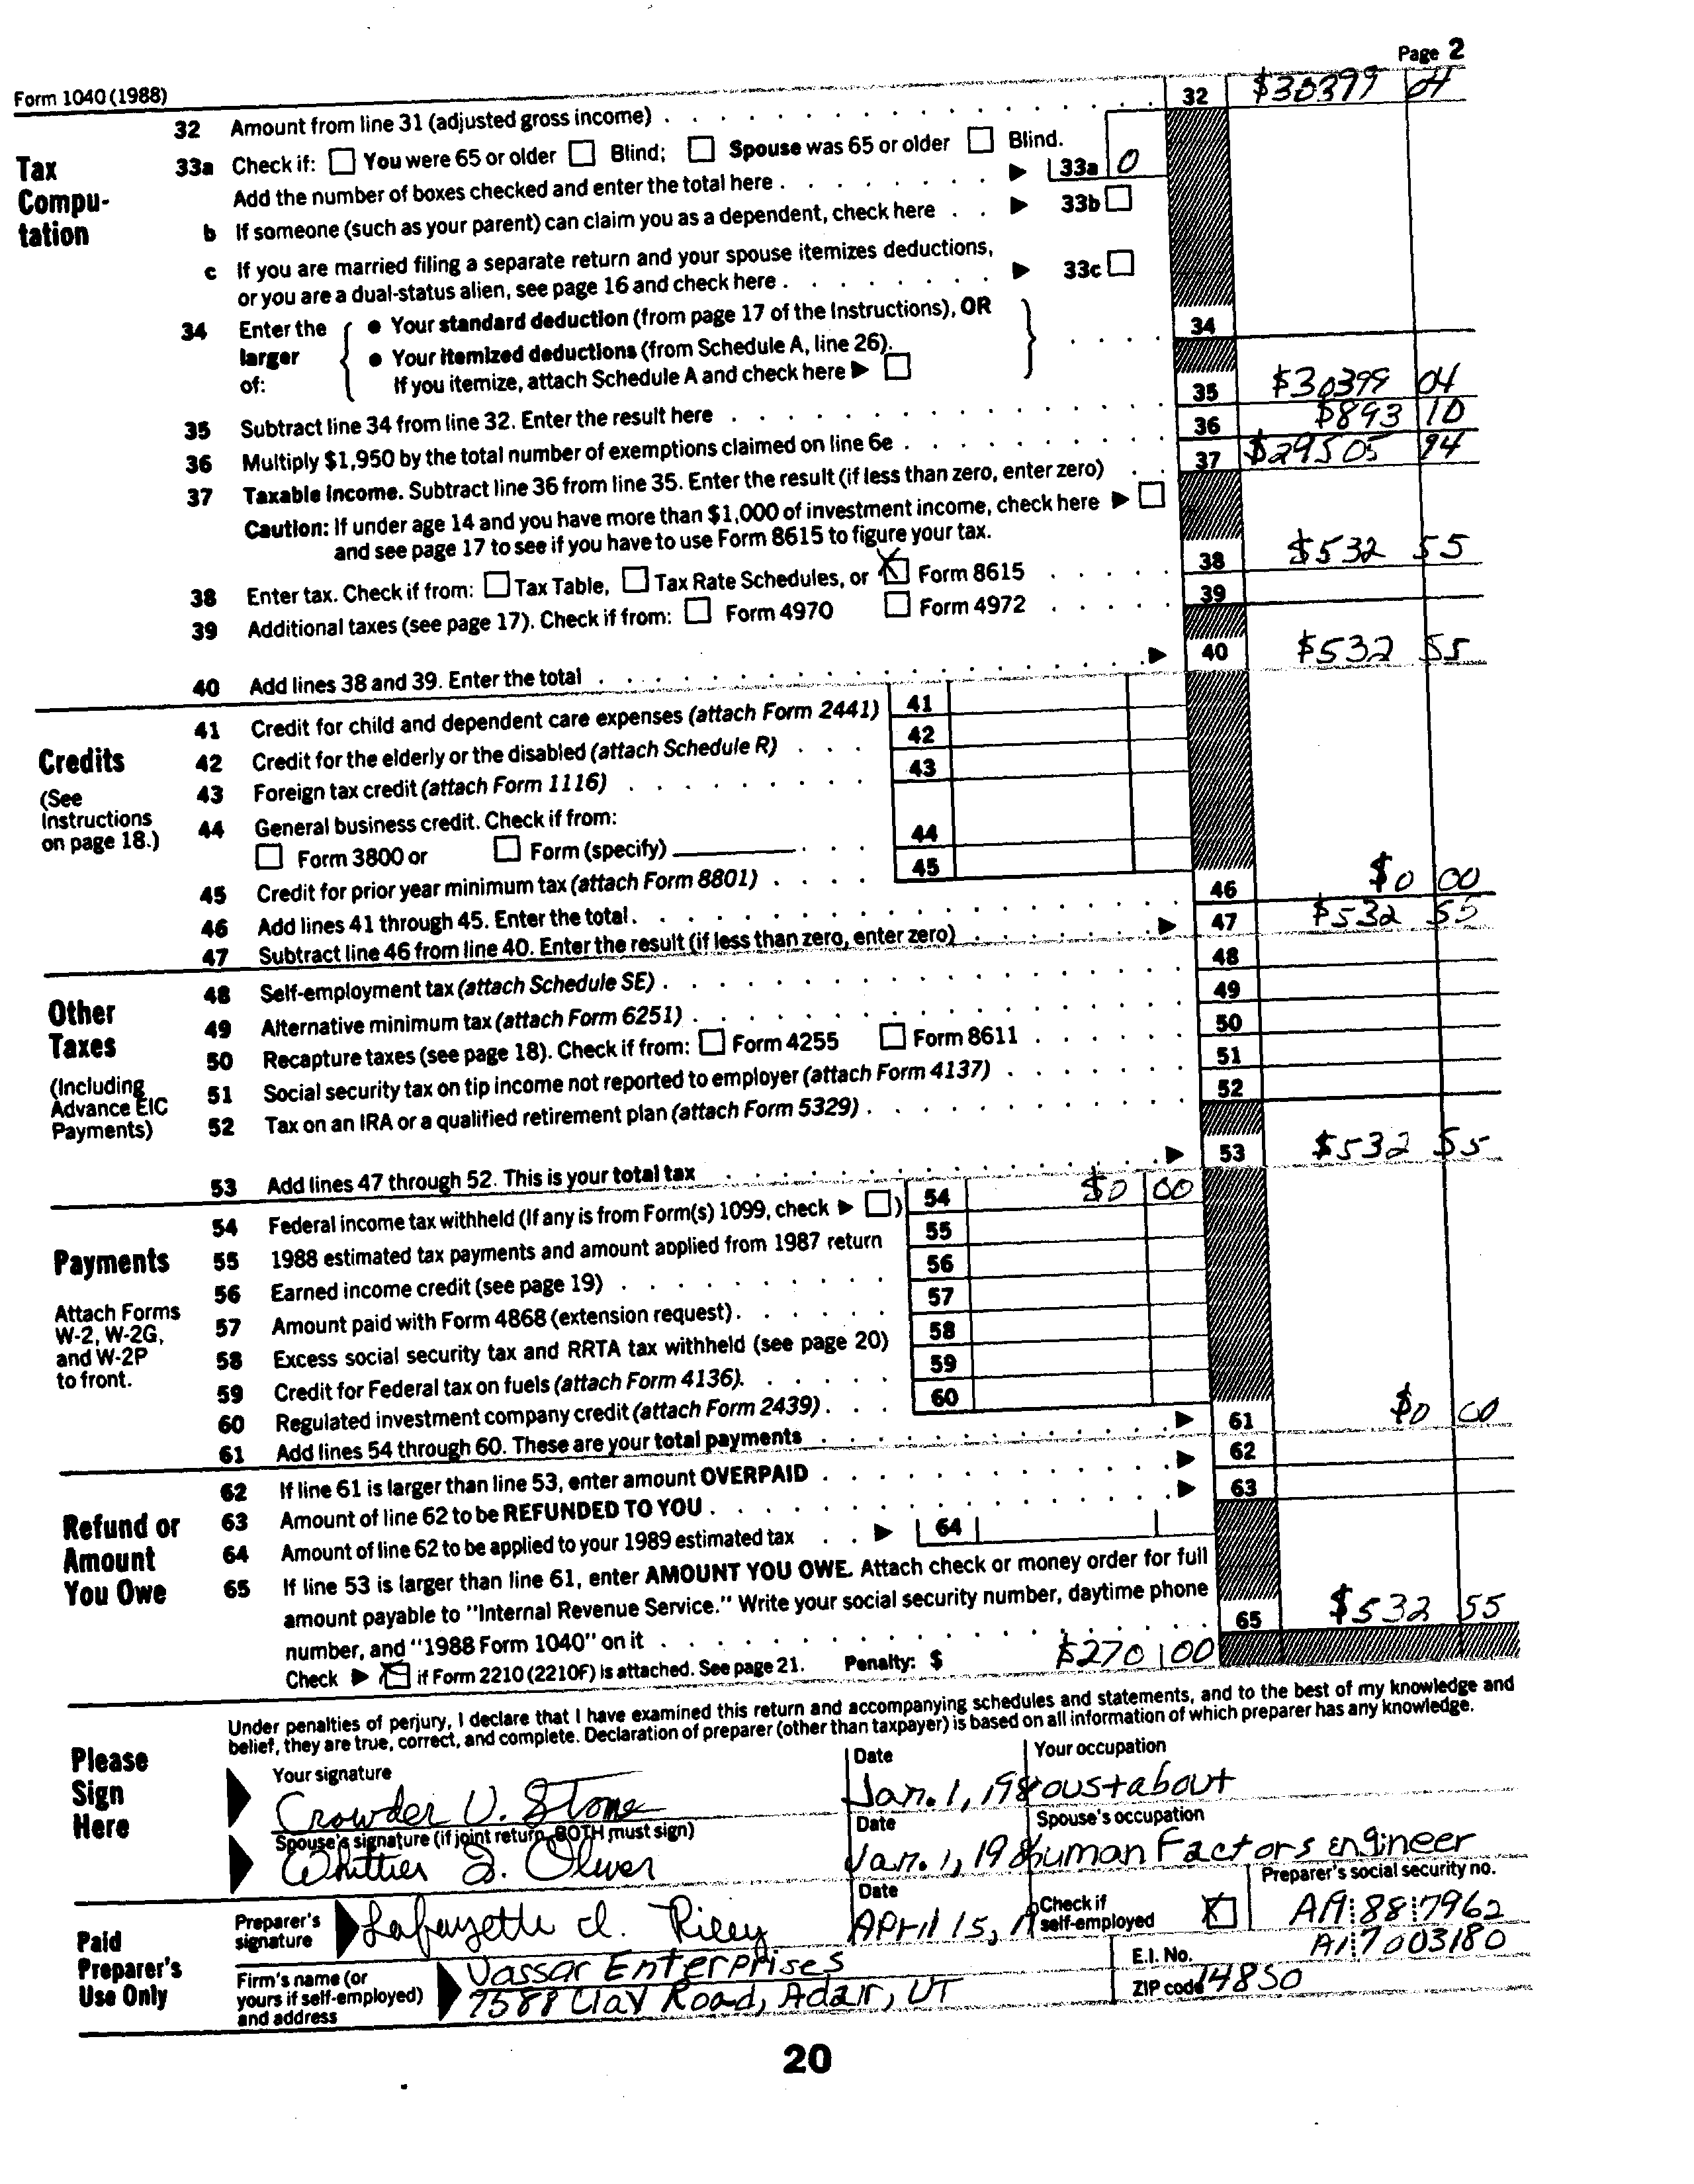 Page 2
Form 1040 (1988)
32 Amount from line 31 (adjusted gross income) 32 $30399 04
Tax Compu- tation
33a Check if: You were 65 or older Blind; Spouse was 65 or older Blind.
Add the number of boxes checked and enter the total here 33a 0
b If someone (such as your parent) can claim you as a dependent, check here 33b
c If you are married filing a separate return and your spouse itemizes deductions,
or you are a dual-status alien, see page 16 and check here 33c
34 Enter the larger of: • Your standard deduction (from page 17 of the Instructions), OR
• Your itemized deductions (from Schedule A, line 26). 34
If you itemize, attach Schedule A and check here
35 Subtract line 34 from line 32. Enter the result here 35 $30399 04
36 Multiply $1,950 by the total number of exemptions claimed on line 6e 36 $893 10
37 Taxable income. Subtract line 36 from line 35. Enter the result (if less than zero, enter zero) 37 $29505 94
Caution: If under age 14 and you have more than $1,000 of investment income, check here
and see page 17 to see if you have to use Form 8615 to figure your tax.
38 Enter tax. Check if from: Tax Table, Tax Rate Schedules, or X Form 8615 38 $532 55
39 Additional taxes (see page 17). Check if from: Form 4970 Form 4972 39
40 Add lines 38 and 39. Enter the total 40 $532 55
Credits
(See Instructions on page 18.)
41 Credit for child and dependent care expenses (attach Form 2441) 41
42 Credit for the elderly or the disabled (attach Schedule R) 42
43 Foreign tax credit (attach Form 1116) 43
44 General business credit. Check if from:
Form 3800 or Form (specify) 44
45 Credit for prior year minimum tax (attach Form 8801) 45
46 Add lines 41 through 45. Enter the total. 46 $0 00
47 Subtract line 46 from line 40. Enter the result (if less than zero, enter zero) 47 $532 55
Other Taxes
(Including Advance EIC Payments)
48 Self-employment tax (attach Schedule SE) 48
49 Alternative minimum tax (attach Form 6251) 49
50 Recapture taxes (see page 18). Check if from: Form 4255 Form 8611 50
51 Social security tax on tip income not reported to employer (attach Form 4137) 51
52 Tax on an IRA or a qualified retirement plan (attach Form 5329) 52
53 Add lines 47 through 52. This is your total tax 53 $532 55
Payments
Attach Forms W-2, W-2G, and W-2P to front.
54 Federal income tax withheld (If any is from Form(s) 1099, check ) 54 $0 00
55 1988 estimated tax payments and amount applied from 1987 return 55
56 Earned income credit (see page 19) 56
57 Amount paid with Form 4868 (extension request) 57
58 Excess social security tax and RRTA tax withheld (see page 20) 58
59 Credit for Federal tax on fuels (attach Form 4136) 59
60 Regulated investment company credit (attach Form 2439) 60
61 Add lines 54 through 60. These are your total payments 61 $0 00
Refund or Amount You Owe
62 If line 61 is larger than line 53, enter amount OVERPAID 62
63 Amount of line 62 to be REFUNDED TO YOU 63
64 Amount of line 62 to be applied to your 1989 estimated tax 64
65 If line 53 is larger than line 61, enter AMOUNT YOU OWE. Attach check or money order for full
amount payable to "Internal Revenue Service." Write your social security number, daytime phone
number, and "1988 Form 1040" on it 65 $532 55
Check X if Form 2210 (2210F) is attached. See page 21. Penalty: $ $270 00
Please Sign Here
Under penalties of perjury, I declare that I have examined this return and accompanying schedules and statements, and to the best of my knowledge and
belief, they are true, correct, and complete. Declaration of preparer (other than taxpayer) is based on all information of which preparer has any knowledge.
Your signature Date Your occupation
Crowder V. Stone Jan. 1, 198 oustabout
Spouse's signature (if joint return, BOTH must sign) Date Spouse's occupation
Whittier Oliver Jan. 1, 198 human Factors engineer
Paid Preparer's Use Only
Preparer's signature Date Check if self-employed X Preparer's social security no.
Lafayette d. Riley April 15, 1 AA 88 7962
Firm's name (or yours if self-employed) and address E.I. No. ZIP code
Vassar Enterprises A17003180
7588 Clay Road, Adair, UT 14850
20